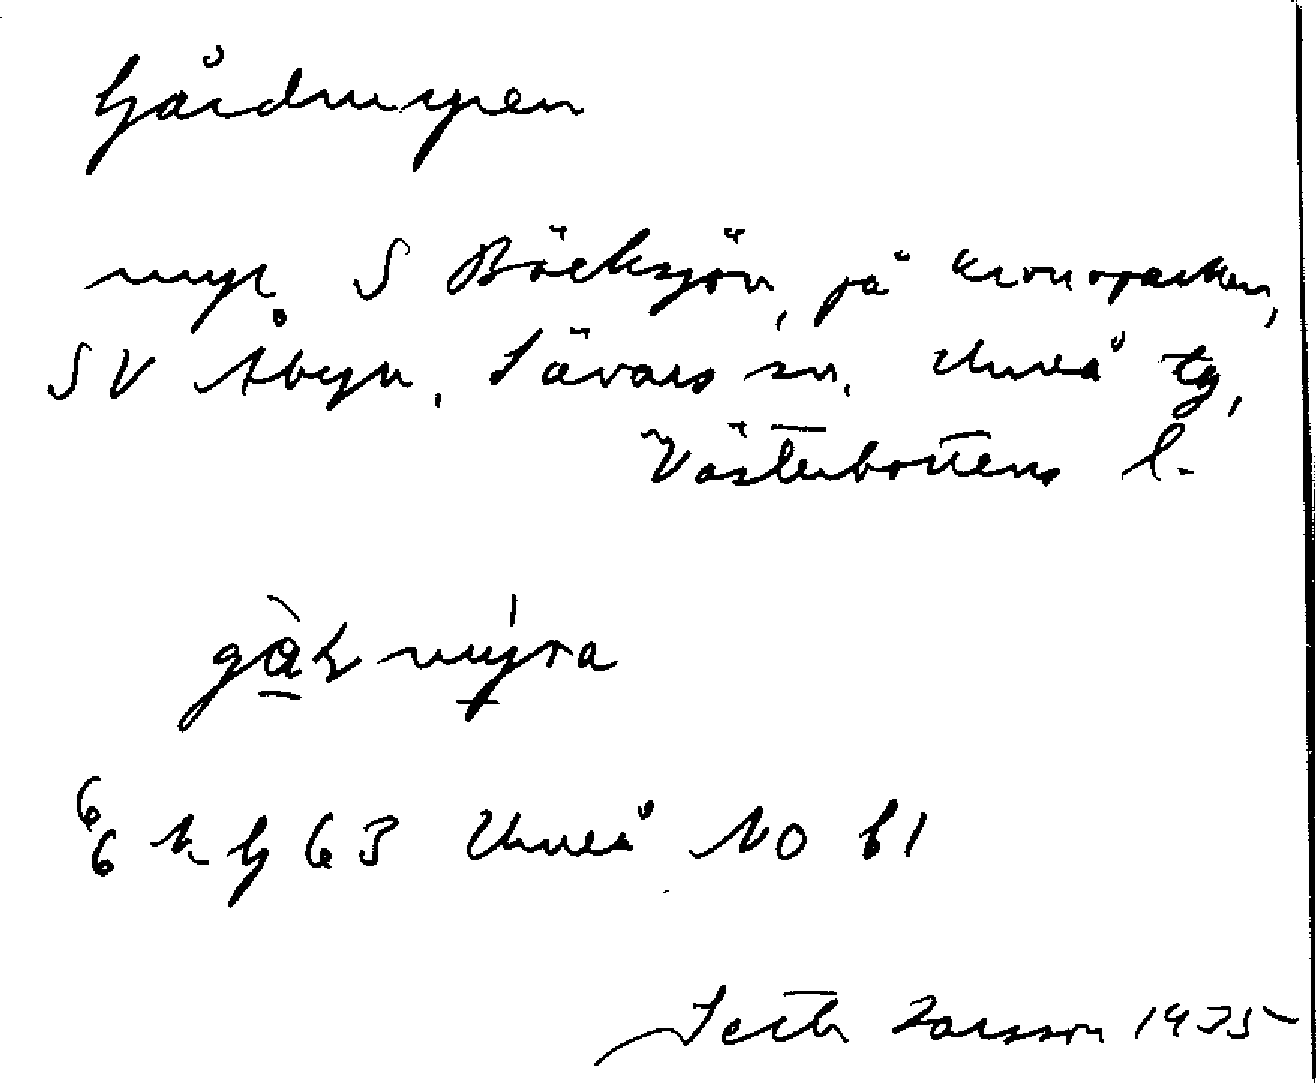 Gårdmyren
myr S Bäcksjön, på kronoparken,
SV Åbyn, Sävars sn, Umeå tg,
Västerbottens l.
gàṟmýra
Umeå NO
Seth Larsson 1935